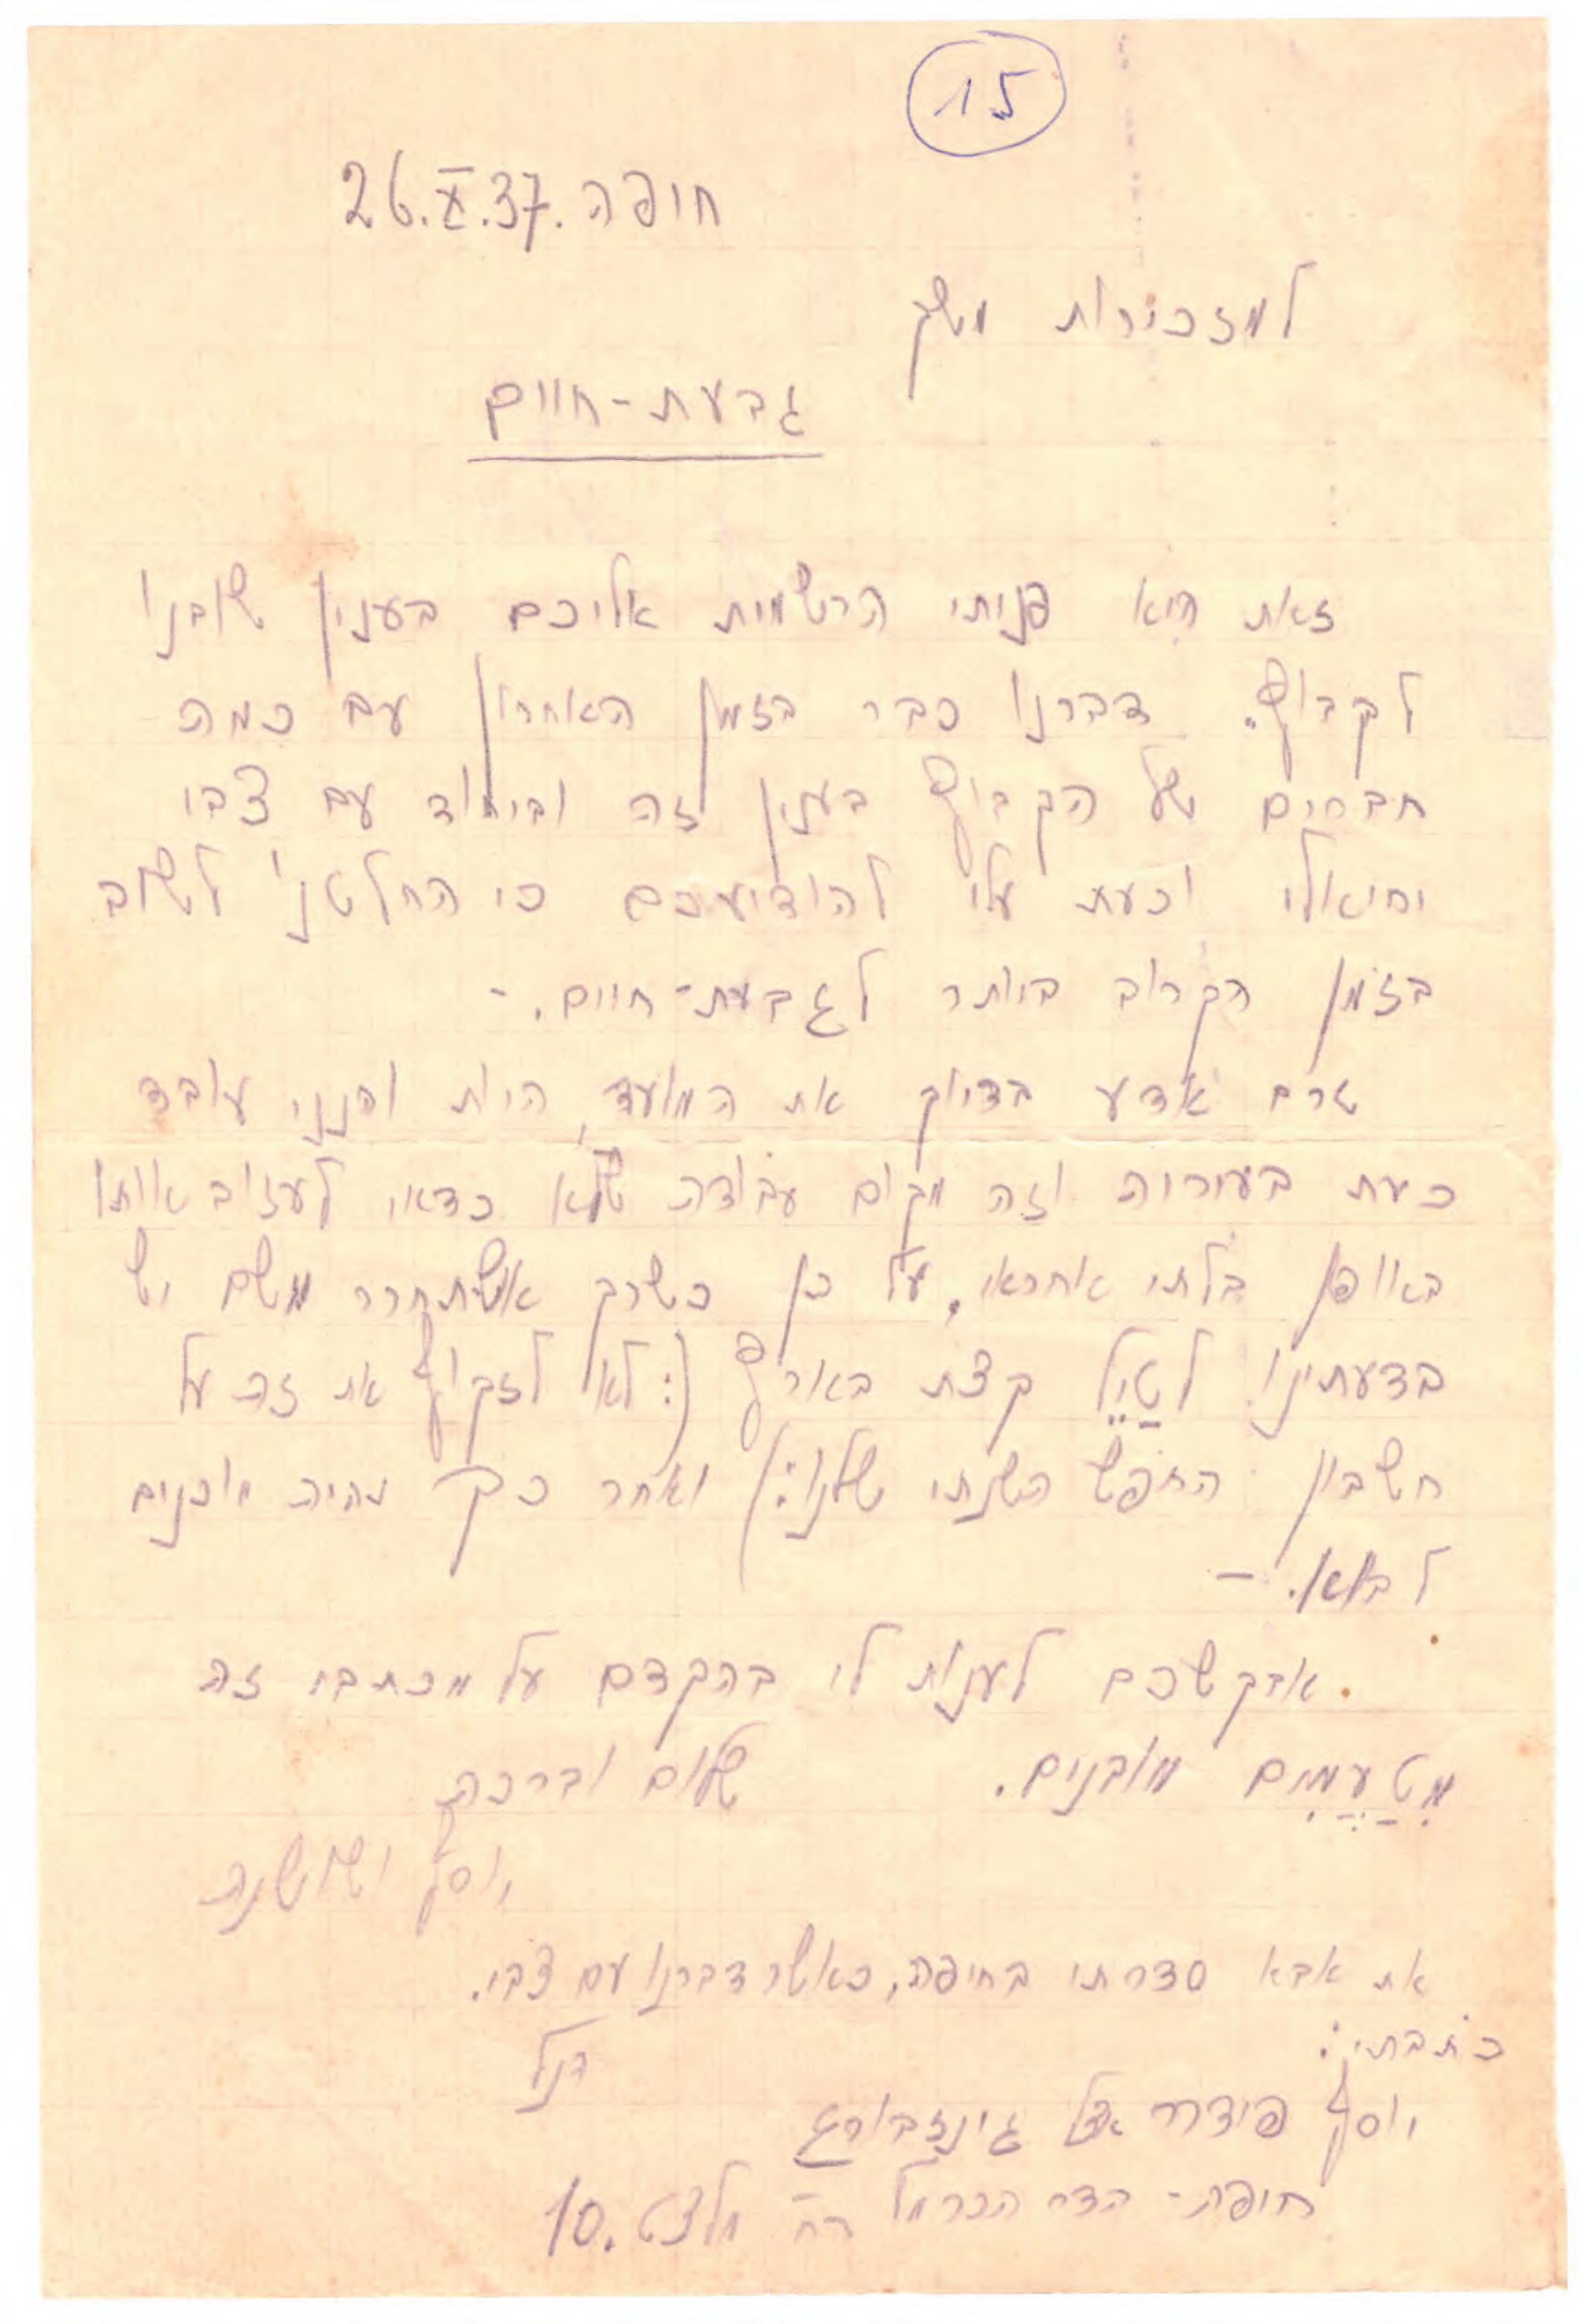 15
חיפה. 26.X.37
למזכירות משק
גבעת-חיים
זאת היא פניתי הרשמית אליכם בענין שובנו
לקבוץ. דברנו כבר בזמן האחרון עם כמה
חברים של הקבוץ בענין זה וביחוד עם צבי
יחיאלי וכעת עלי להודיעכם כי החלטנו לשוב
בזמן הקרוב ביותר לגבעת-חיים. -
טרם אדע בדיוק את המועד, היות והנני עובד
כעת בעיריה וזה מקום עבודה שלא כדאי לעזוב אותו
באופן בלתי אחראי, על כן כשרק אשתחרר משם יש
בדעתינו לטַיֵל קצת בארץ (: לא לזקוף את זה על
חשבון החפש השנתי שלנו :) ואחר כך נהיה מוכנים
לבוא. -
אבקשכם לענות לי בהקדם על מכתבי זה
מִטַעֲמִים מובנים. שלום וברכה
יוסף ושושנה
את אבא סדרתי בחיפה, כאשר דברנו עם צבי.
הנ"ל
כתבתי:
יוסף פידרר אצל גינזבורג
חיפה - הדר הכרמל רח' מלצט 10.